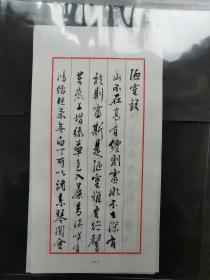 陋室銘
山不在高有僊則名水不在深有
龍則靈斯是陋室惟吾德馨
苔痕上階綠草色入簾青談笑有
鴻儒往來無白丁可以調素琴閱金